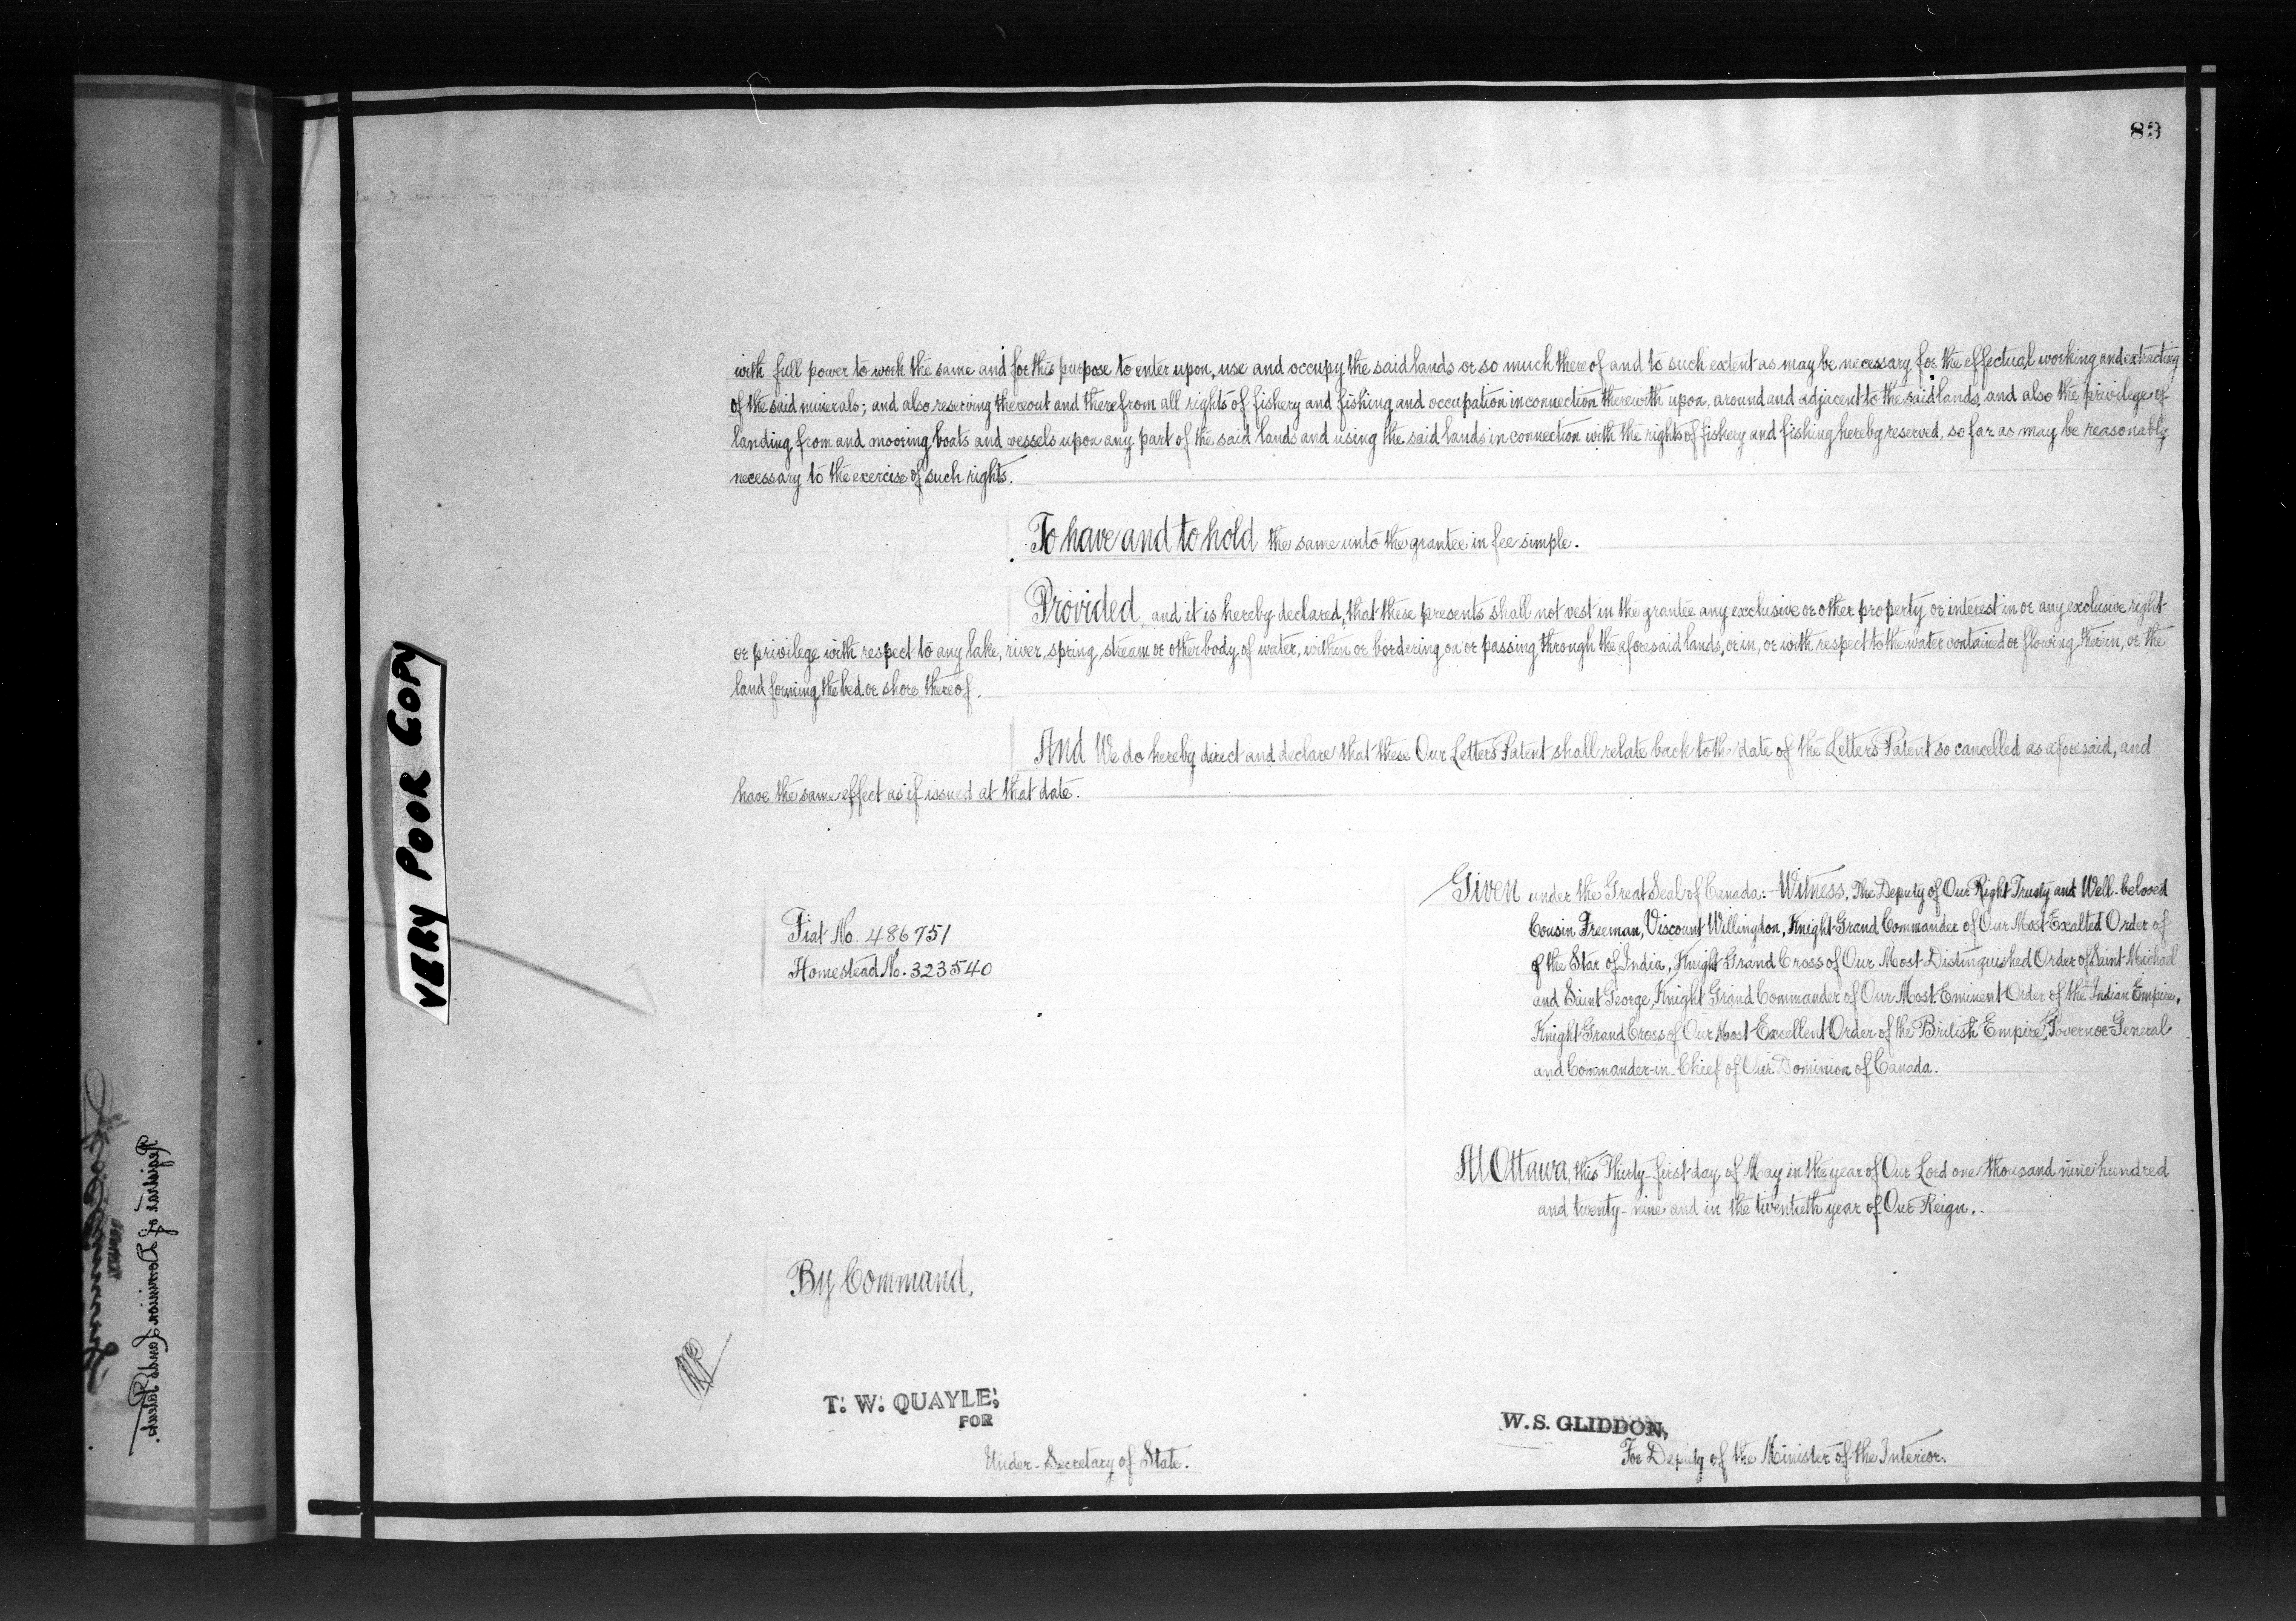 83
with full power to work the same and for this purpose to enter upon, use and occupy the said lands or so much thereof and to such extent as may be necessary for the effectual working and extracting
of the said minerals; and also reserving thereout and therefrom all rights of fishery and fishing and occupation in connection therewith upon, around and adjacent to the said lands, and also the privilege of
landing from and mooring boats and vessels upon any part of the said lands and using the said lands in connection with the rights of fishery and fishing hereby reserved, so far as may be reasonably
necessary to the exercise of such rights.
To have and to hold the same unto the grantee in fee simple.
Provided, and it is hereby declared, that these presents shall not vest in the grantee any exclusive or other property or interest in or any exclusive right
or privilege with respect to any lake, river, spring, stream or other body of water, within or bordering on or passing through the aforesaid lands, or in, or with respect to the water contained or flowing therein, or the
land forming the bed or shore thereof.
And We do hereby direct and declare that these Our Letters Patent shall relate back to th date of the Letters Patent so cancelled as aforesaid, and
have the same effect as if issued at that date.
VERY POOR COPY
Fiat No. 486751
Homestead No. 323540
Given under the Great Seal of Canada:- Witness, The Deputy of Our Right Trusty and Well-beloved
Cousin Freeman, Viscount Willingdon, Knight Grand Commander of Our Most Exalted Order of
of the Star of India, Knight Grand Cross of Our Most Distinquished Order of Saint Michael
and Saint George, Knight Grand Commander of Our Most Eminent Order of the Indian Empire,
Knight Grand Cross of Our Most Excellent Order of the British Empire, Governor General
and Commander-in-Chief of Our Dominion of Canada.
At Ottawa, this Thirty-first day of May in the year of Our Lord one thousand nine hundred
and twenty-nine and in the twentieth year of Our Reign.
By Command,
T. W. QUAYLE,
FOR
Under-Secretary of State.
W. S. GLIDDON,
For Deputy of the Minister of the Interior.
Registrar of Dominion Lands Patents.